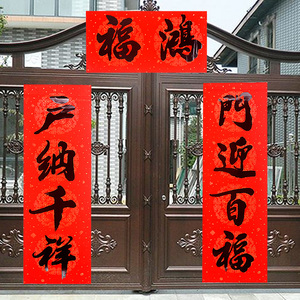 鴻福
門迎百福
戸納千祥